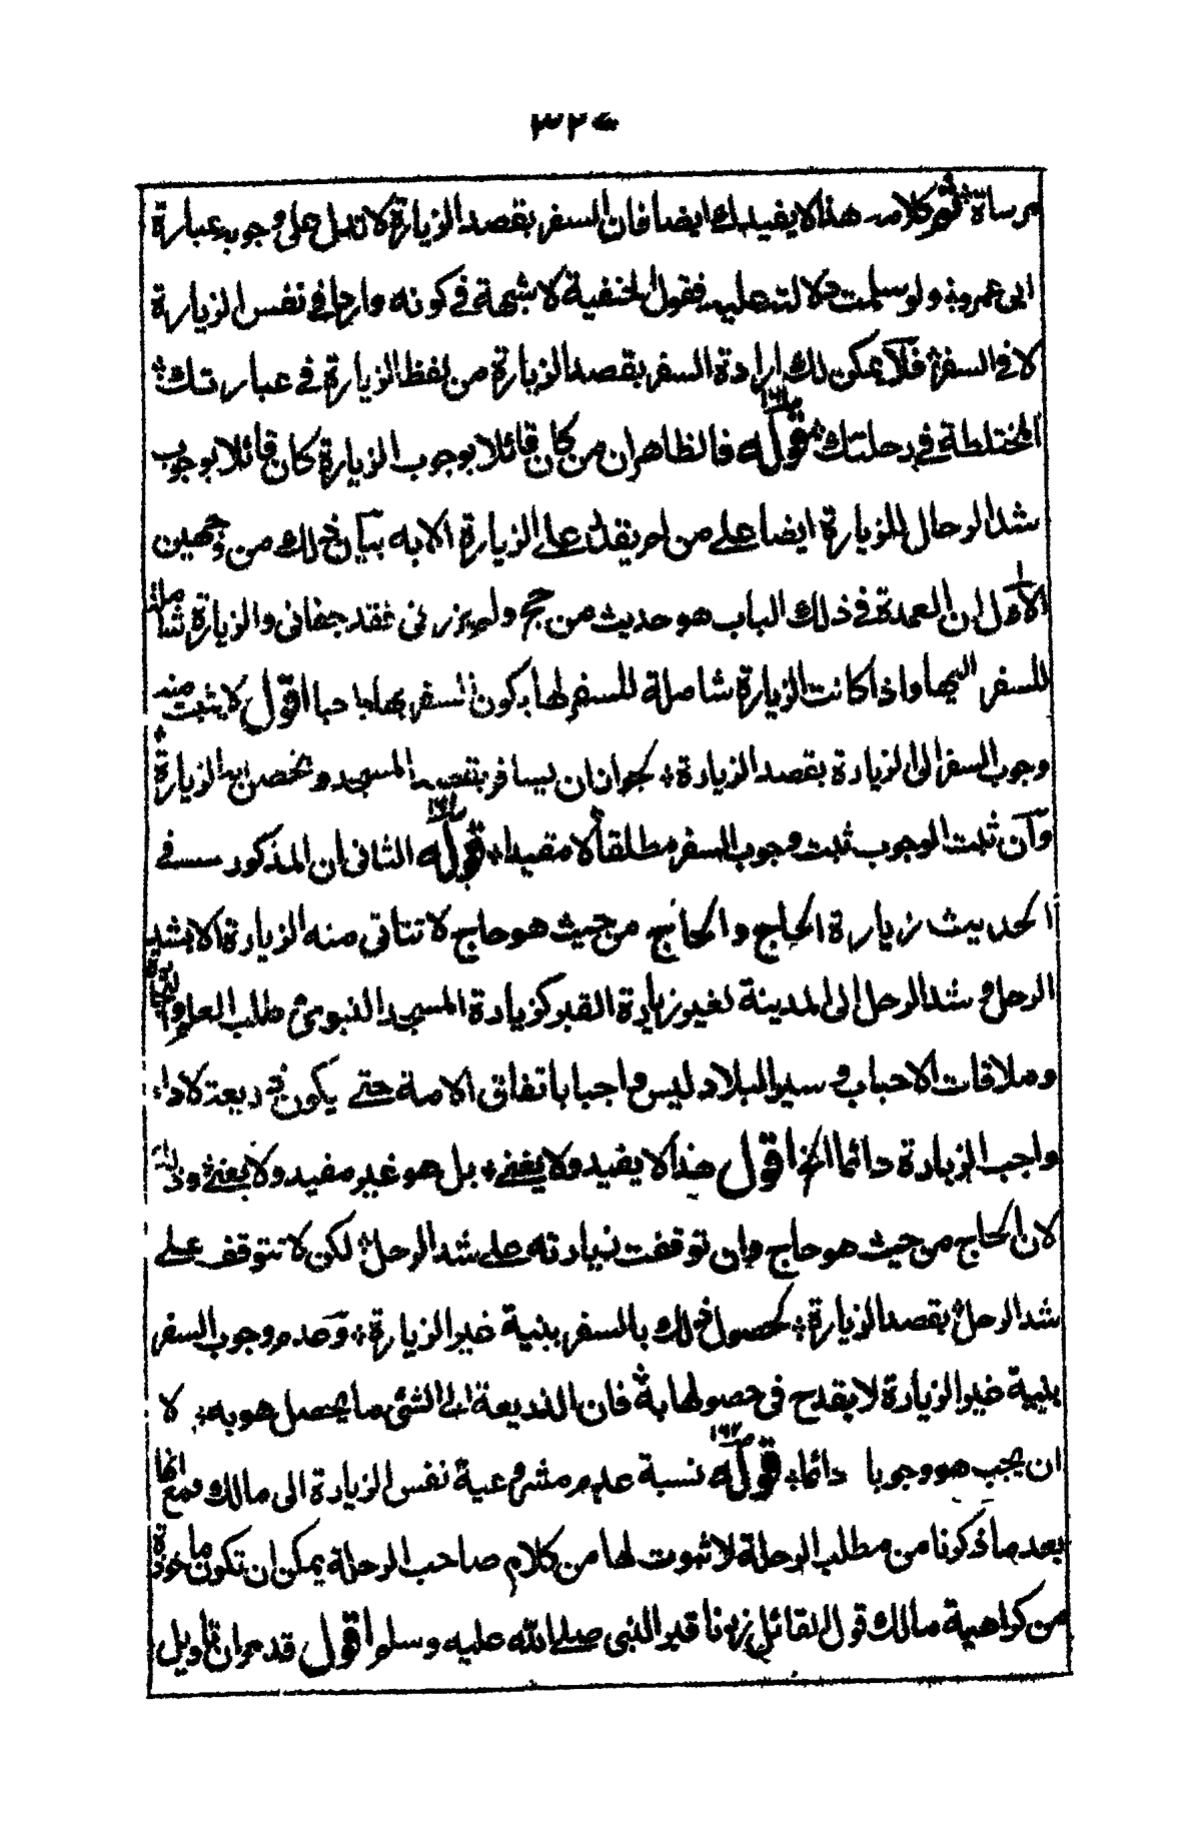 ٣٢٧
كلامه هذا لا يفيدك ايضا فان السفر بقصد الزيارة لا تدل على وجوبه عبارة
ابى عمرو ولو سلمت دلالته عليه فقول الحنفية لا شبهة في كونه واردا في نفس الزيارة
لا في السفر فلا يمكن لك ارادة السفر بقصد الزيارة من لفظ الزيارة في عبارتك
المختلطة في رحلتك قوله فالظاهر ان من كان قائلا بوجوب الزيارة كان قائلا بوجوب
شد الرحال للزيارة ايضا على من لم يقدر على الزيارة الا به بيان ذلك من وجهين
الاول ان العمدة في ذلك الباب هو حديث من حج ولم يزرنى فقد جفانى والزيارة شاملة
للسفر اليها واذا كانت الزيارة شاملة للسفر لها يكون السفر بها اقول لا يثبت منه
وجوب السفر الى الزيارة بقصد الزيارة لجواز ان يسافر بقصد المسجد وتحصل به الزيارة
وان ثبت الوجوب ثبت وجوب السفر مطلقا لا مقيدا قوله ١٦١ الثانى ان المذكور في
الحديث زيارة الحاج والحاج من حيث هو حاج لا تتاتى منه الزيارة الا بشد
الرحل وشد الرحل الى المدينة لغير زيارة القبر كزيارة المسجد النبوى وطلب العلم
وملاقات الاحباب وسير البلاد ليس واجبا باتفاق الامة حتى يكون ذريعة لاداء
واجب الزيارة دائما الخ اقول هذا لا يفيد ولا يغنى بل هو غير مفيد ولا يغنى وذلك
لان الحاج من حيث هو حاج وان توقفت زيارته على شد الرحل لكن لا تتوقف على
شد الرحل بقصد الزيارة لحصول ذلك بالسفر بنية غير الزيارة وعدم وجوب السفر
بنية غير الزيارة لا يقدح في حصولها به فان الذريعة الى الشئ ما يحصل هو به لا
ان يجب هو وجوبا دائما قوله ١٦٢ نسبة عدم مشروعية نفس الزيارة الى مالك مع انها
بعد ما ذكرنا من مطلب الرحلة لا ثبوت لها من كلام صاحب الرحلة يمكن ان تكون ماخوذة
من كراهية مالك قول القائل زرنا قبر النبى صلى الله عليه وسلم اقول قد مر ان تاويل